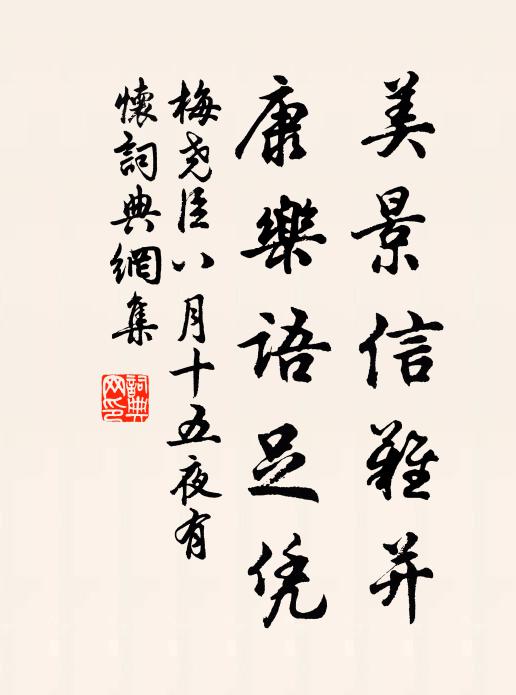 美景信難并
康樂語足凭
梅尧臣八月十五夜有
懷詞典網集
詞典
网印